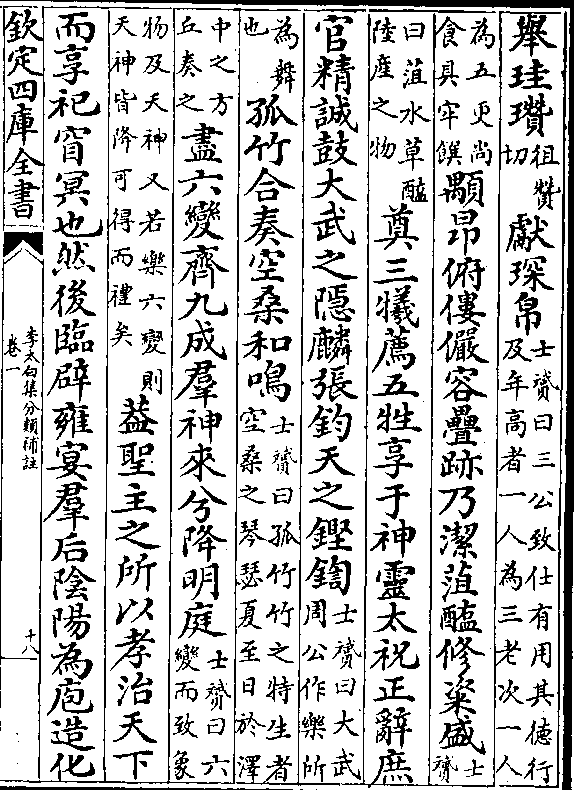 舉珪瓚徂贊切獻琛帛士贇曰三公致仕有用其德行及年高者一人為三老次一人
為五更尚食具牢饌顒昂俯僂儼容疊跡乃潔葅醢修粢盛士贇
曰葅水草醢陸產之物奠三犧薦五牲享于神靈太祝正辭庶
官精誠鼓大武之隱麟張鈞天之鏗鍧士贇曰大武周公作樂所
為舞也孤竹合奏空桑和鳴士贇曰孤竹竹之特生者空桑之琴瑟夏至日於澤
中之方丘奏之盡六變齊九成羣神來兮降明庭士贇曰六變而致象
物及天神又若樂六變則天神皆降可得而禮矣葢聖主之所以孝治天下
而享祀窅冥也然後臨辟雍宴羣后陰陽為庖造化
欽定四庫全書
李太白集分類補註
卷一
十八